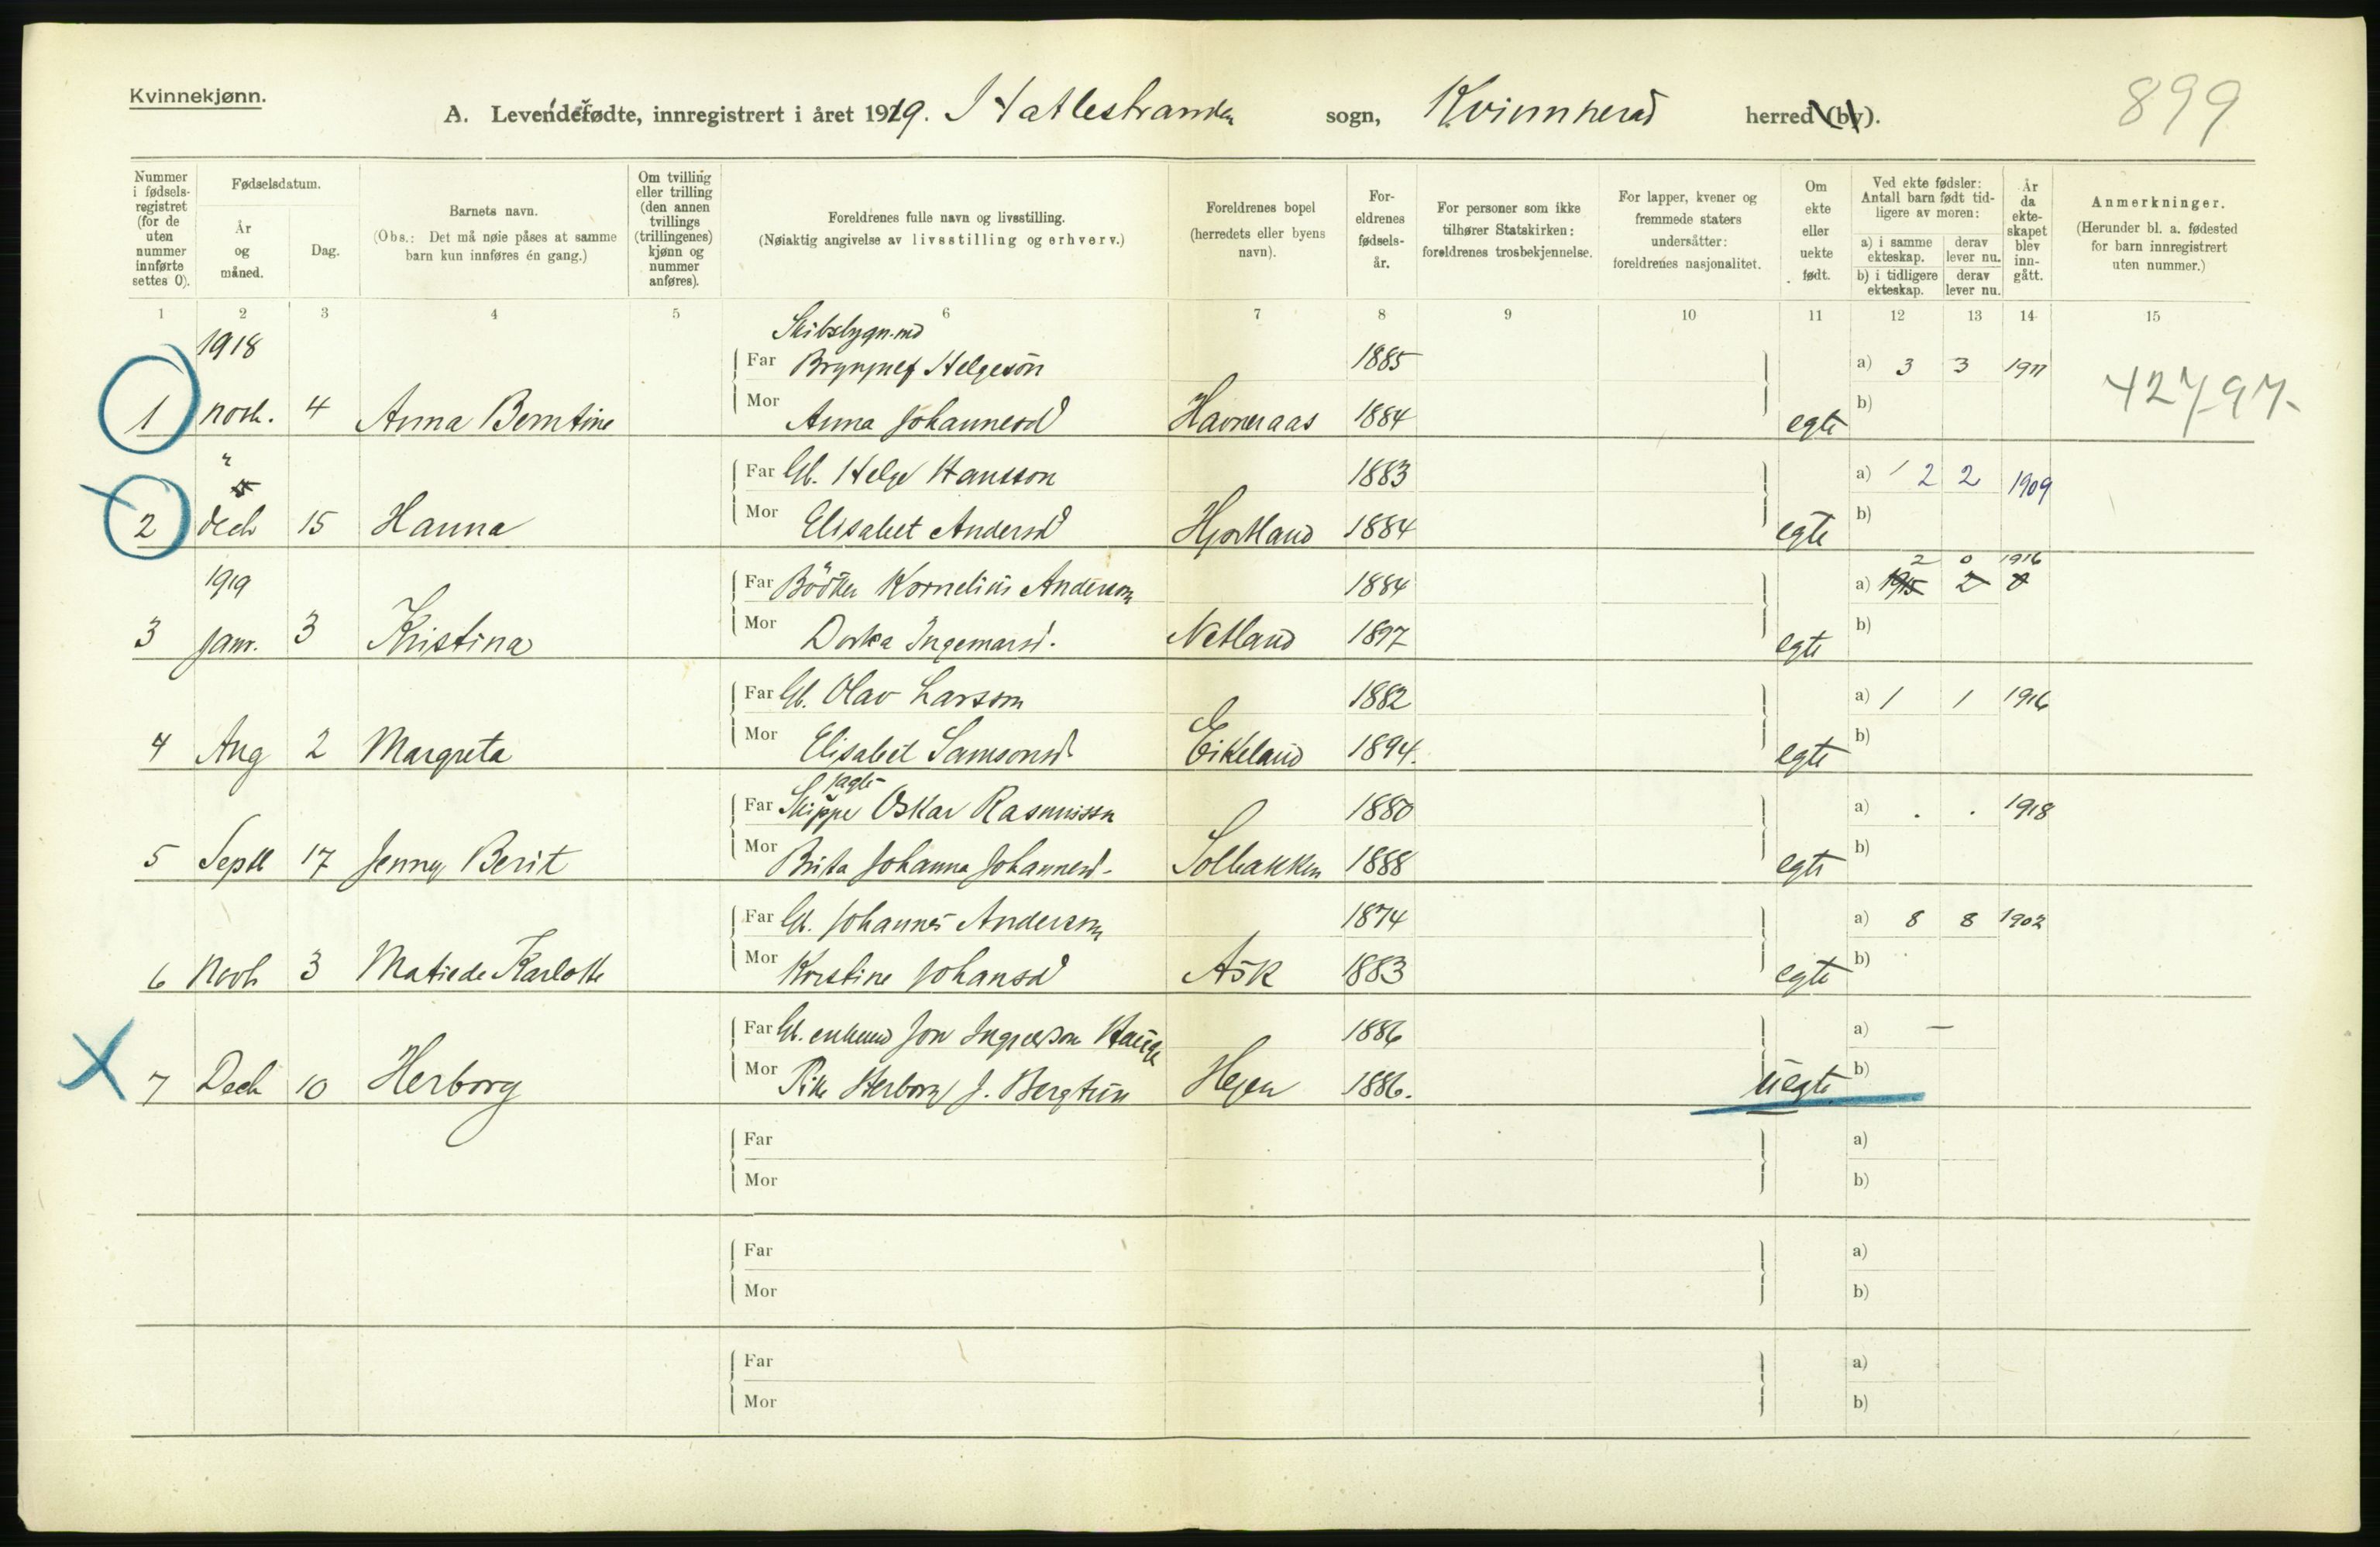 Kvinnekjønn.
A. Levendefødte, innregistrert i året 1919. Hatlestranden sogn, Kvinnherad herred (by).
899
Nummer i fødsels-registret (for de uten nummer innførte settes 0).
Fødselsdatum.
År og måned.
Dag.
Barnets navn.
(Obs.: Det må nøie påses at samme barn kun innføres én gang.)
Om tvilling eller trilling (den annen tvillings (trillingenes) kjønn og nummer anføres).
Foreldrenes fulle navn og livsstilling.
(Nøiaktig angivelse av livsstilling og erhverv.)
Foreldrenes bopel (herredets eller byens navn).
For-eldrenes fødsels-år.
For personer som ikke tilhører Statskirken: foreldrenes trosbekjennelse.
For lapper, kvener og fremmede staters undersåtter: foreldrenes nasjonalitet.
Om ekte eller uekte født.
Ved ekte fødsler: Antall barn født tid-ligere av moren:
a) i samme ekteskap.
derav lever nu.
b) i tidligere ekteskap.
derav lever nu.
År da ekte-skapet blev inn-gått.
Anmerkninger.
(Herunder bl. a. fødested for barn innregistrert uten nummer.)
1 2 3 4 5 6 7 8 9 10 11 12 13 14 15
1918 Skibsbygn.md
Far Brynjulf Helgeson 1885 a) 3 3 1911
1 novb. 4 Anna Berntine Mor Anna Johannesd Havneraas 1884 egte b)
42797-
" Far Gb. Helge Hansson 1883 a) 2 2 1909
2 decb 15 Hanna Mor Elisabet Andersd Hjortland 1884 egte b)
2 0 1916
1919 Far Bödker Kornelius Anderson 1884 a) 1915 2 0
3 Janr. 3 Kristina Mor Dorka Ingemarsd. Netland 1897 egte b)
Far Gb. Olav Larsson 1882 a) 1 1 1916
4 Aug 2 Margreta Mor Elisabet Samsonsd. Eikeland 1894. egte b)
jagte
Far Skipper Oskar Rasmussen 1880 a) . . 1918
5 Septb 17 Jenny Berit Mor Brita Johanna Johannesd. Solbakken 1888 egte b)
Far Gb. Johannes Anderson 1874 a) 8 8 1902
6 Novb 3 Matilde Karlotte Mor Kristine Johansd Ask 1883 egte b)
Far Gb. enkemd Jon Ingvaldson Hauge 1886 a) —
7 Decb 10 Herborg Mor Pike Herborg J. Bergtun Hegen 1886. uegte b)
Far a)
Mor b)
Far a)
Mor b)
Far a)
Mor b)